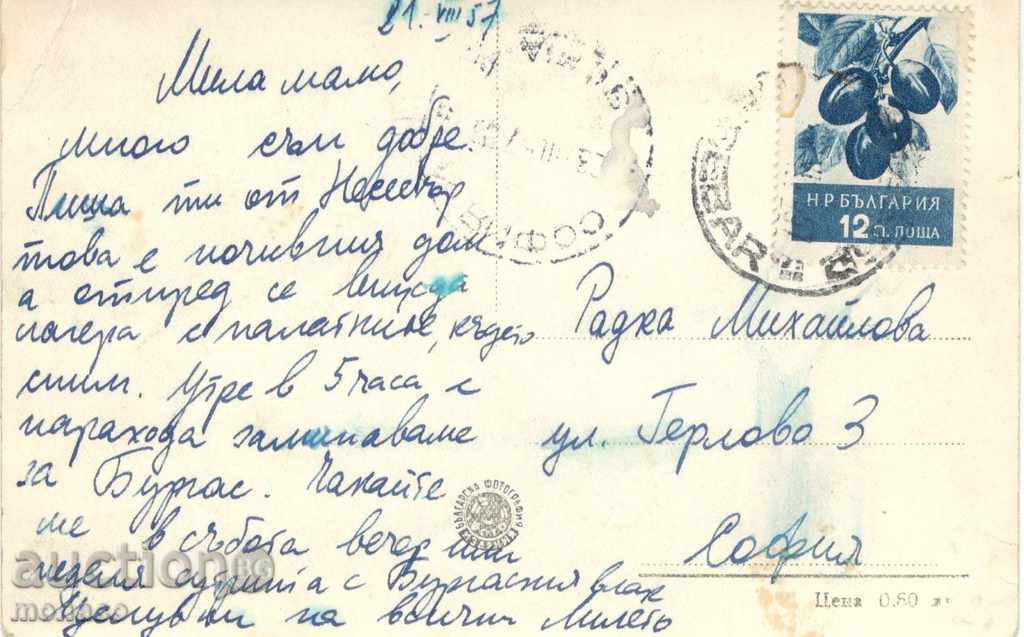 21.VIII 57
Мила мамо,
много съм добре.
Пиша ти от Несебър
това е почивния дом
а отпред се вижда
лагера с палатките, където
спим. Утре в 5 часа с
парахода заминаваме
за Бургас. Чакайте
ме в събота вечер или
неделя сутринта с Бургаския влак
Целувки на всички
НР БЪЛГАРИЯ
12 СТ. ПОЩА
СОФИЯ
Радка Михайлова
ул. Герлово 3
София
БЪЛГАРСКА ФОТОГРАФИЯ
Цена 0.80 лв.
auctionBG